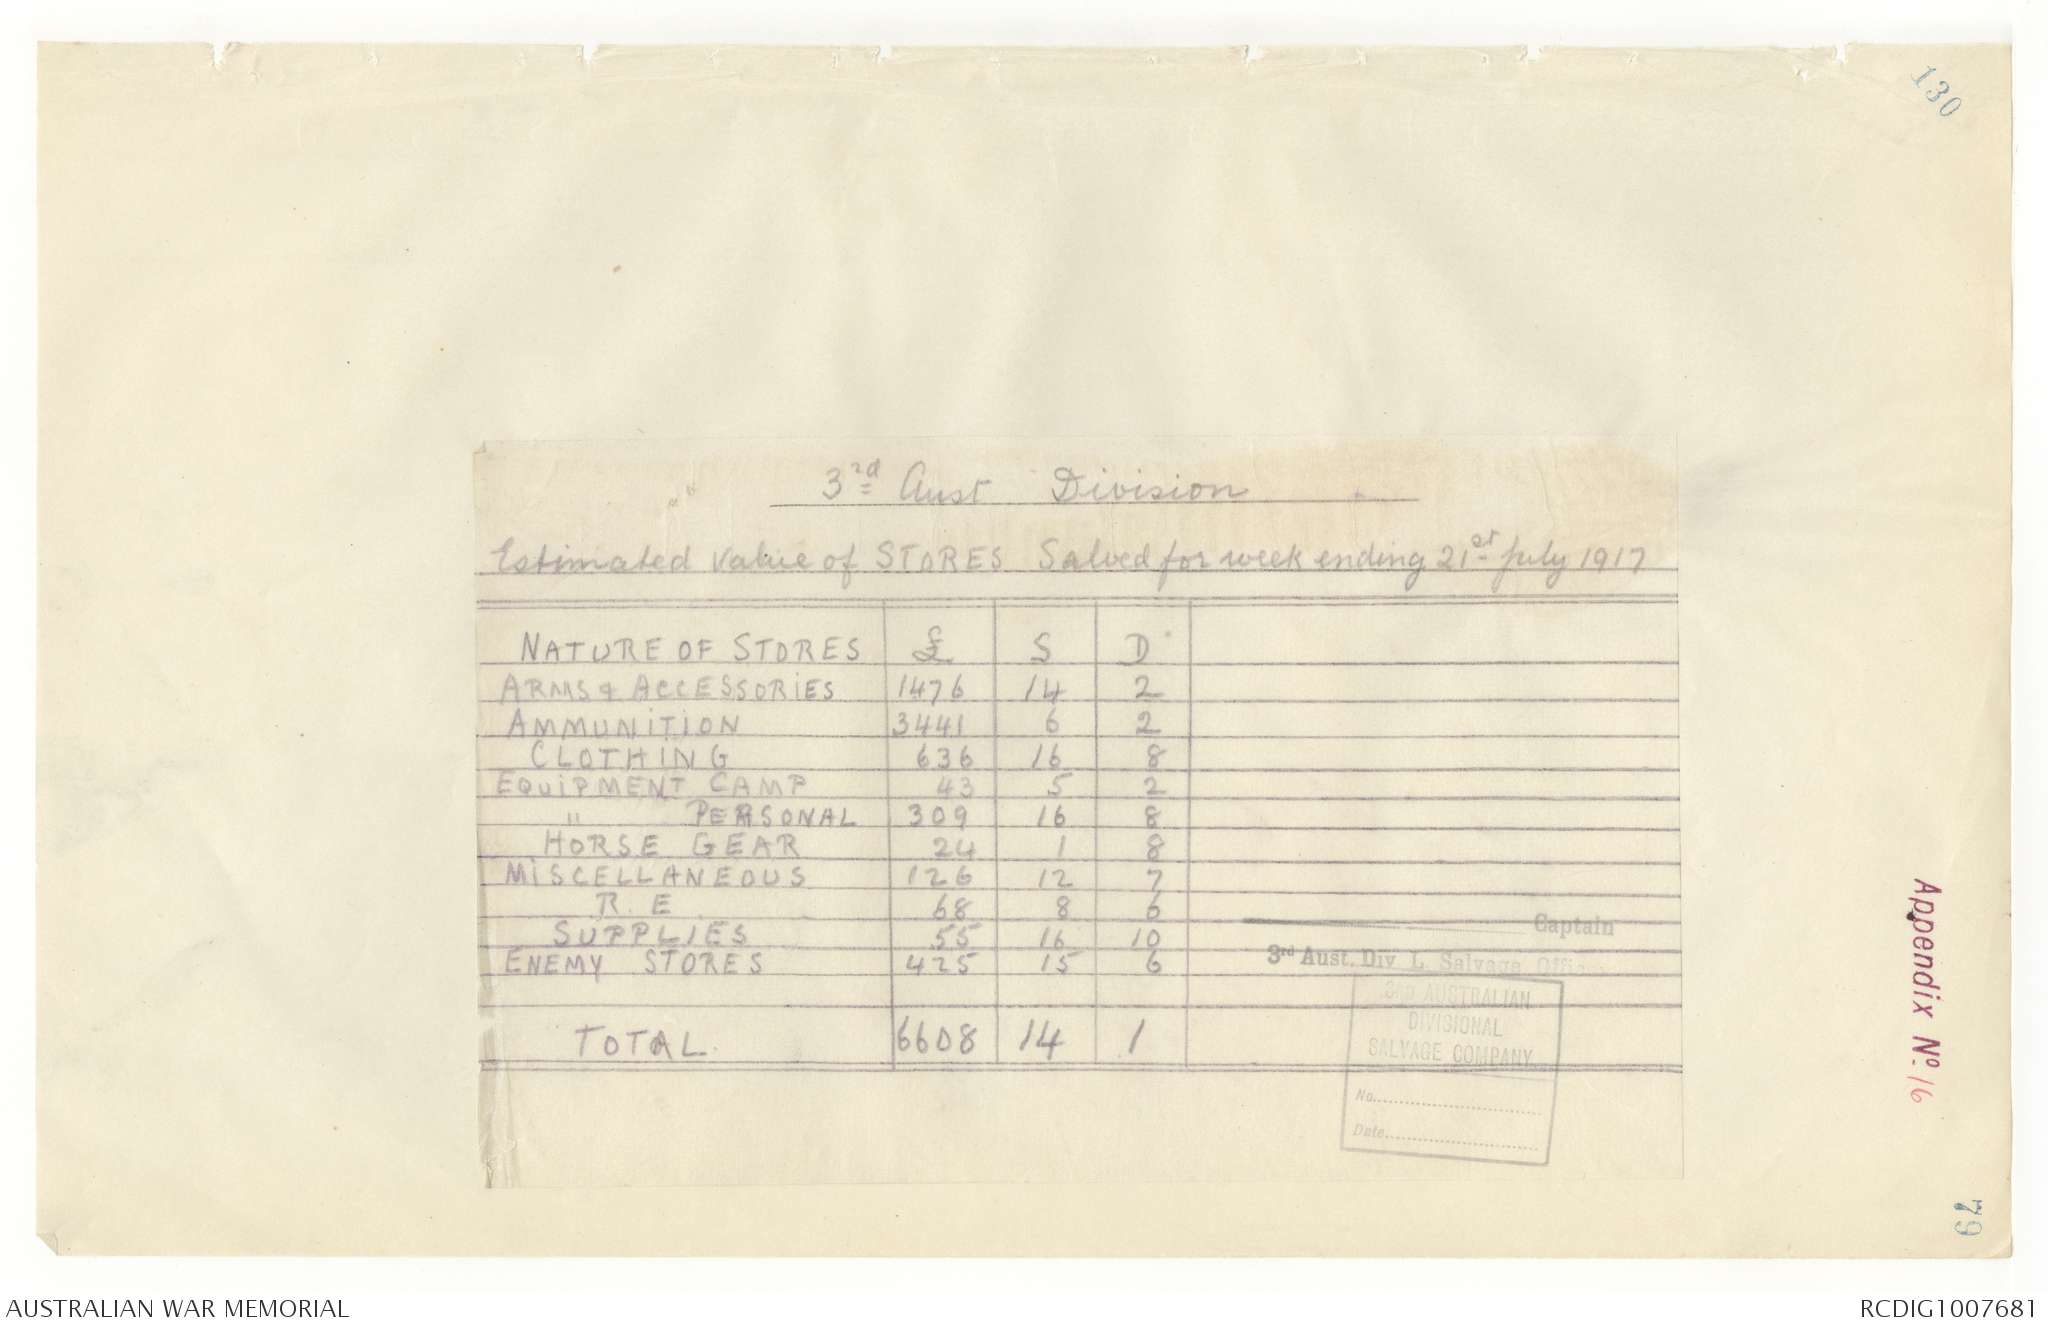 130
3rd Aust Division
Estimated value of STORES Salved for week ending 21st July 1917
NATURE OF STORES £ S D
ARMS & ACCESSORIES 1476 14 2
AMMUNITION 3441 6 2
CLOTHING 636 16 8
EQUIPMENT CAMP 43 5 2
" PERSONAL 309 16 8
HORSE GEAR 24 1 8
MISCELLANEOUS 126 12 7
R. E 68 8 6
SUPPLIES 55 16 10
ENEMY STORES 425 15 6
TOTAL. 6608 14 1
Captain
3rd Aust. Div. L. Salvage
3RD AUSTRALIAN
DIVISIONAL
SALVAGE COMPANY
No.
Date
Appendix No. 16
79
AUSTRALIAN WAR MEMORIAL
RCDIG1007681